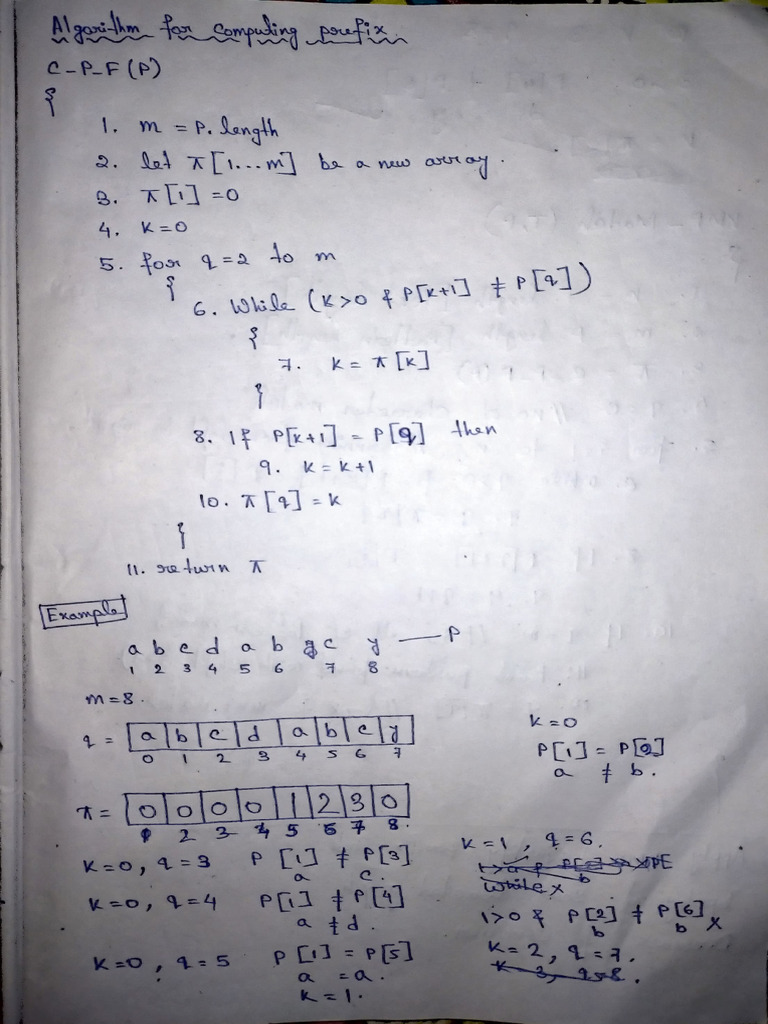 Algorithm for computing prefix.
C-P-F (P)
{
1. m = P. length
2. let π [1...m] be a new array.
3. π [1] = 0
4. K = 0
5. for q = 2 to m
{
6. While (K>0 & P[K+1] ≠ P[q])
{
7. K = π [K]
}
8. If P[K+1] = P[q] then
9. K = K+1
10. π [q] = K
}
11. return π
Example
a b c d a b c y — P
1 2 3 4 5 6 7 8
m = 8.
q = a b c d a b c y
0 1 2 3 4 5 6 7
π = 0 0 0 0 1 2 3 0
1 2 3 4 5 6 7 8.
K=0, q=3 P [1] ≠ P[3]
a c.
K=0, q=4 P[1] ≠ P[4]
a ≠ d.
K=0, q=5 P [1] = P[5]
a = a.
K = 1.
K=0
P[1] = P[2]
a ≠ b.
K=1, q=6.
While x
1>0 & P[2] ≠ P[6] x
b b
K=2, q=7.
K 3, q=8.